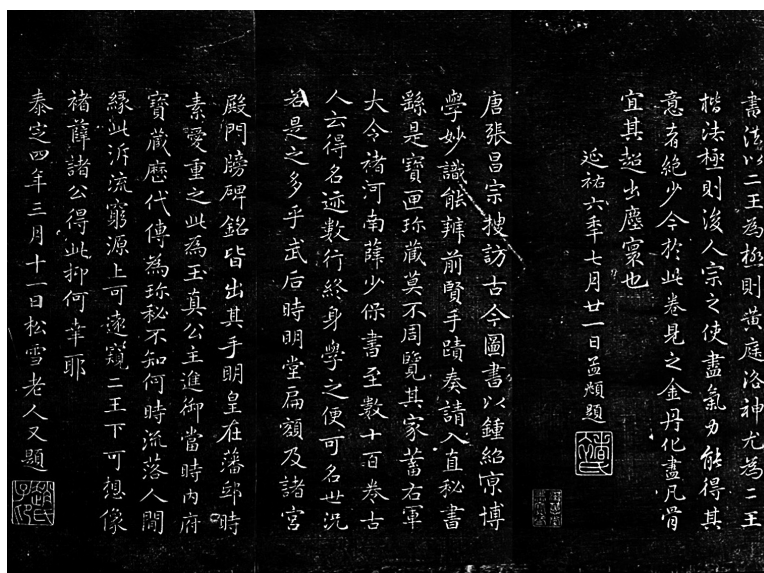 書法以二王為極則黄庭洛神尤為二王
楷法極則後人宗之使盡氣力能得其
意者絶少今於此卷見之金丹化盡凡骨
宜其超出塵寰也
延祐六年七月廿一日孟頫題
唐張昌宗搜訪古今圖書以鍾紹京博
學妙識能辨前賢手蹟奏請入直秘書
繇是寶匣珎藏莫不周覽其家蓄右軍
大令褚河南薛少保書至數十百卷古
人云得名迹數行終身學之便可名世況
若是之多乎武后時明堂扁額及諸宮
殿門牓碑銘皆出其手明皇在藩邸時
素愛重之此為玉真公主進御當時内府
寶藏歷代傳為珎秘不知何時流落人間
緣此泝流窮源上可遠窺二王下可想像
褚薛諸公得此抑何幸耶
泰定四年三月十一日松雪老人又題
趙氏子昂